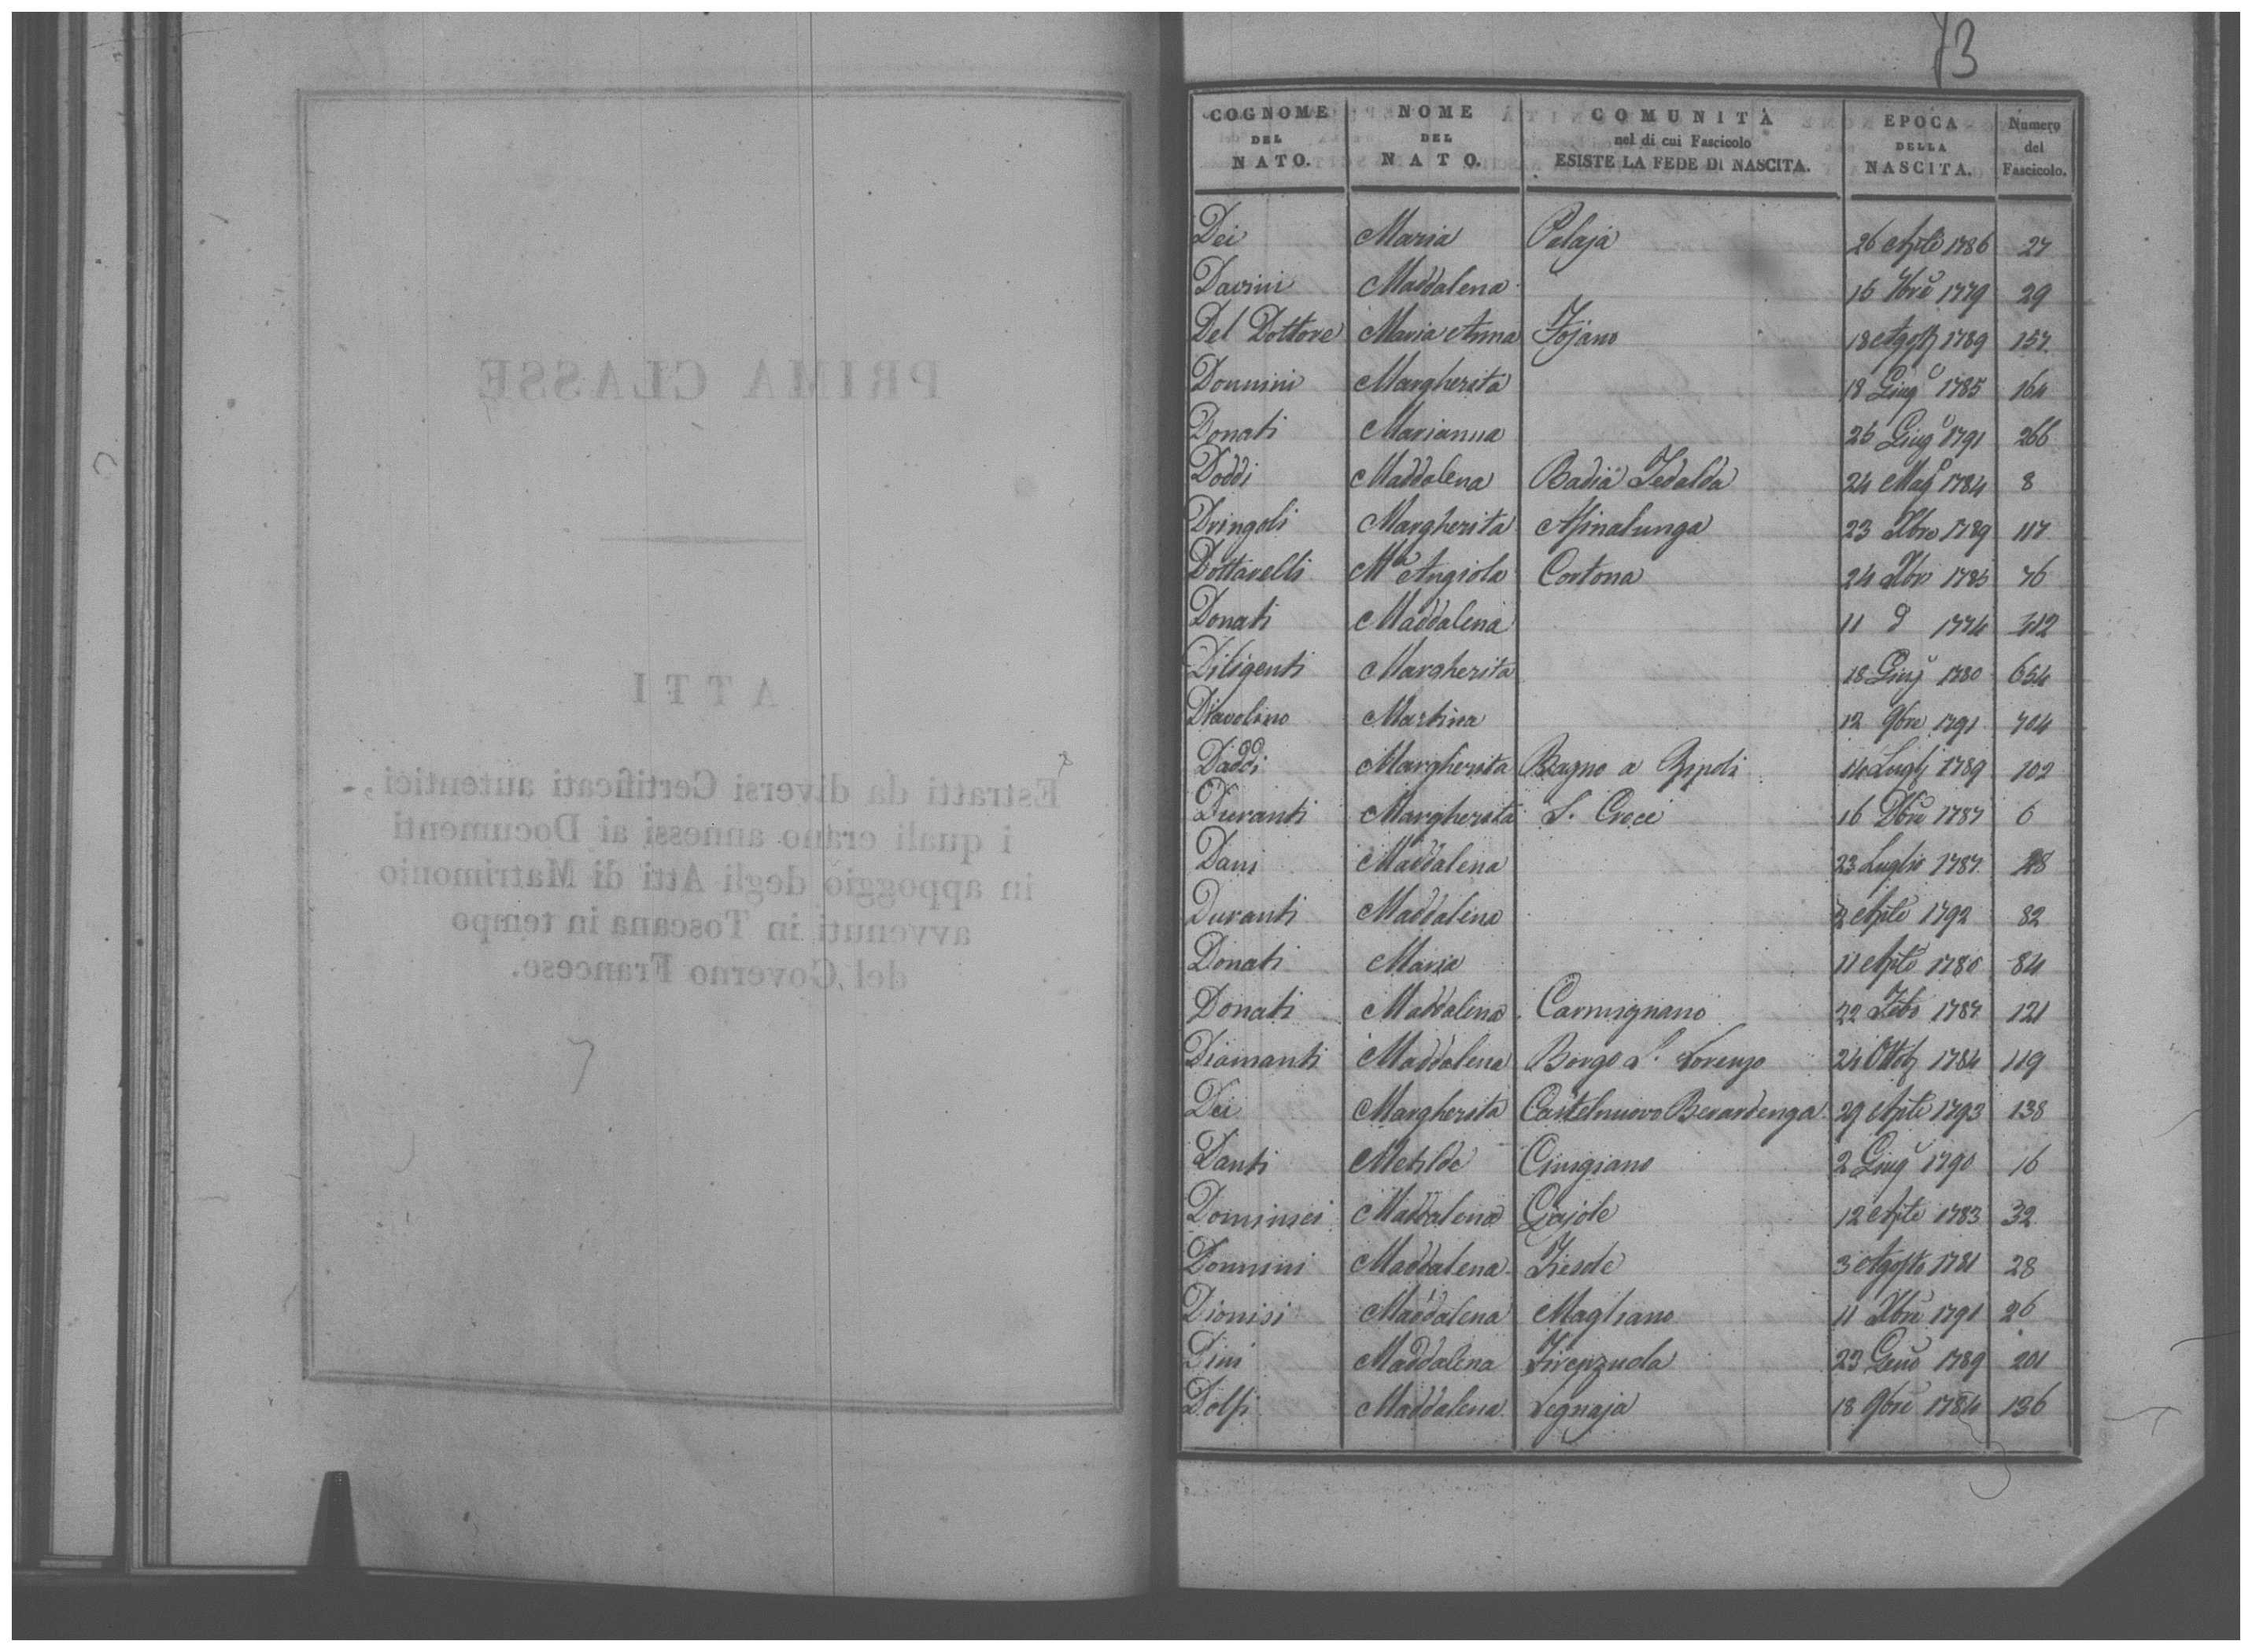 PRIMA CLASSE
ATTI
Estratti da diversi Certificati autentici,
i quali erano annessi ai Documenti
in appoggio degli Atti di Matrimonio
avvenuti in Toscana in tempo
del Governo Francese.
73
COGNOME DEL NATO. NOME DEL NATO. COMUNITÀ nel di cui Fascicolo ESISTE LA FEDE DI NASCITA. EPOCA DELLA NASCITA. Numero del Fascicolo.
Dei Maria Palaja 26 Aple 1786 27
Davini Maddalena 16 7bre 1779 29
Del Dottore Maria Anna Fojano 18 Agosto 1789 157
Donnini Margherita 18 Giugo 1785 164
Donati Marianna 25 Giugo 1791 266
Doddi Maddalena Badia Tedalda 24 Mago 1784 8
Dringoli Margherita Asinalunga 23 Xbre 1789 117
Dottarelli Ma Angiola Cortona 24 Xbre 1785 76
Donati Maddalena 11 d 1774 412
Diligenti Margherita 18 Giugo 1780 654
Diavolino Martina 12 9bre 1791 704
Daddi Margherita Bagno a Ripoli 14 Lugl 1789 102
Duranti Margherita S. Croce 16 Xbre 1787 6
Dani Maddalena 23 Luglio 1787 28
Duranti Maddalena 2 Aple 1792 82
Donati Maria 11 Aple 1786 84
Donati Maddalena Carmignano 22 Febo 1787 121
Diamanti Maddalena Borgo S. Lorenzo 24 Ottob 1784 119
Dei Margherita Castelnuovo Berardenga 29 Aple 1793 138
Danti Metilde Cinigiano 2 Giugo 1790 16
Dominici Maddalena Gajole 12 Aple 1783 32
Donnini Maddalena Fiesole 3 Agosto 1781 28
Dionisi Maddalena Magliano 11 Xbre 1791 26
Dini Maddalena Firenzuola 23 Geno 1789 201
Dolfi Maddalena Legnaja 18 9bre 1784 136